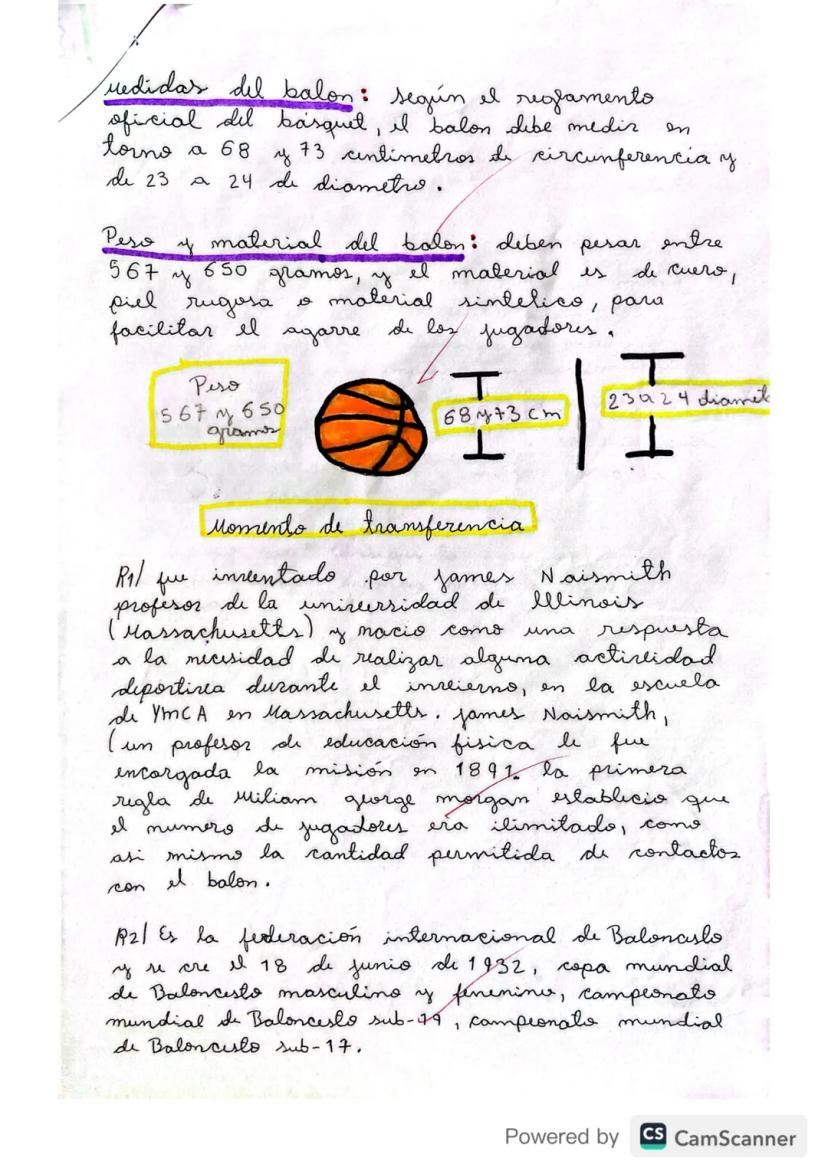 Medidas del balon: según el reglamento
oficial del básquet, el balon debe medir en
torno a 68 y 73 centimetros de circunferencia y
de 23 a 24 de diametro.
Peso y material del balon: deben pesar entre
567 y 650 gramos, y el material es de cuero,
piel rugosa o material sintelico, para
facilitar el agarre de los jugadores.
Peso
567 y 650
gramos
68 y 73 cm
23 a 24 diamet
Momento de transferencia
R1/ fue inventado por james Naismith
profesor de la universidad de Illinois
(Massachusetts) y nacio como una respuesta
a la necesidad de realizar alguna actividad
deportiva durante el invierno, en la escuela
de YMCA en Massachusetts. james Naismith,
(un profesor de educación fisica le fue
encargada la misión en 1891. la primera
regla de Wiliam george morgan establecio que
el numero de jugadores era ilimitado, como
asi mismo la cantidad permitida de contactos
con el balon.
R2/ Es la federación internacional de Baloncesto
y se cre el 18 de junio de 1932, copa mundial
de Baloncesto masculino y femenino, campeonato
mundial de Baloncesto sub-19, campeonato mundial
de Baloncesto sub-17.
Powered by CS CamScanner